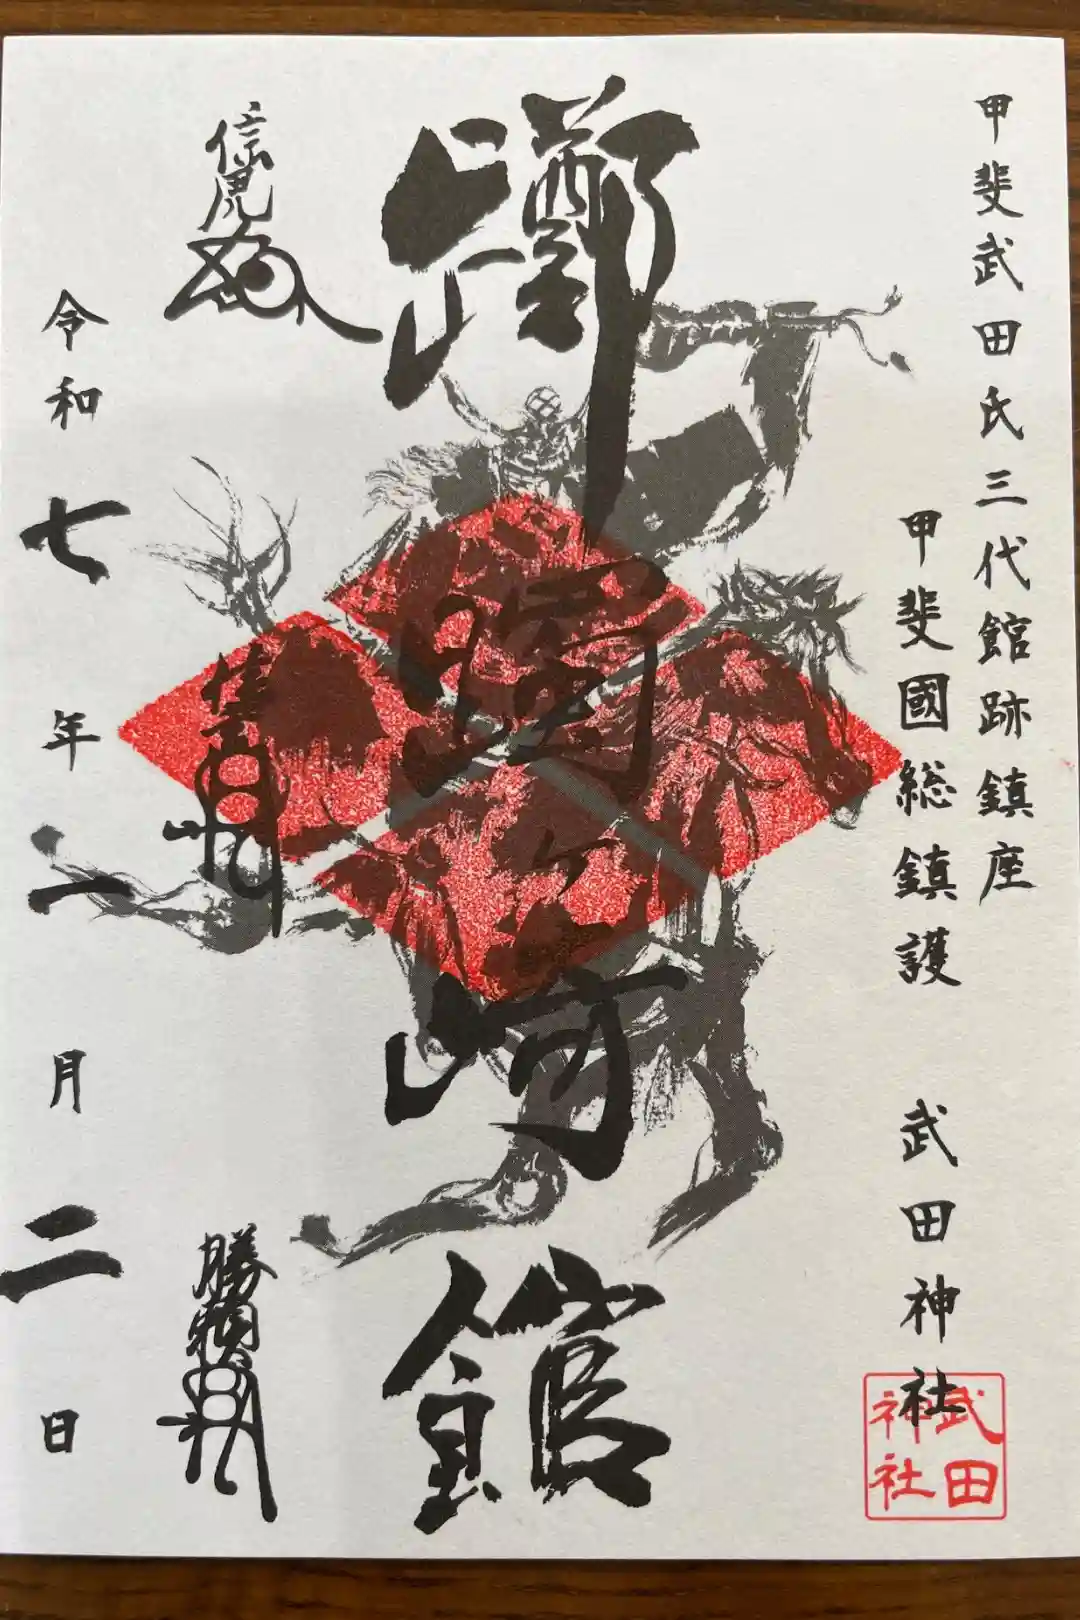 甲斐武田氏三代館跡鎮座
甲斐國総鎮護 武田神社
武田神社
躑躅ヶ崎館
信虎
勝頼
令和七年一月二日